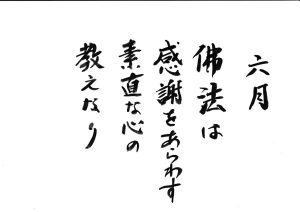 六月
佛法は
感謝をあらわす
素直な心の
教えなり